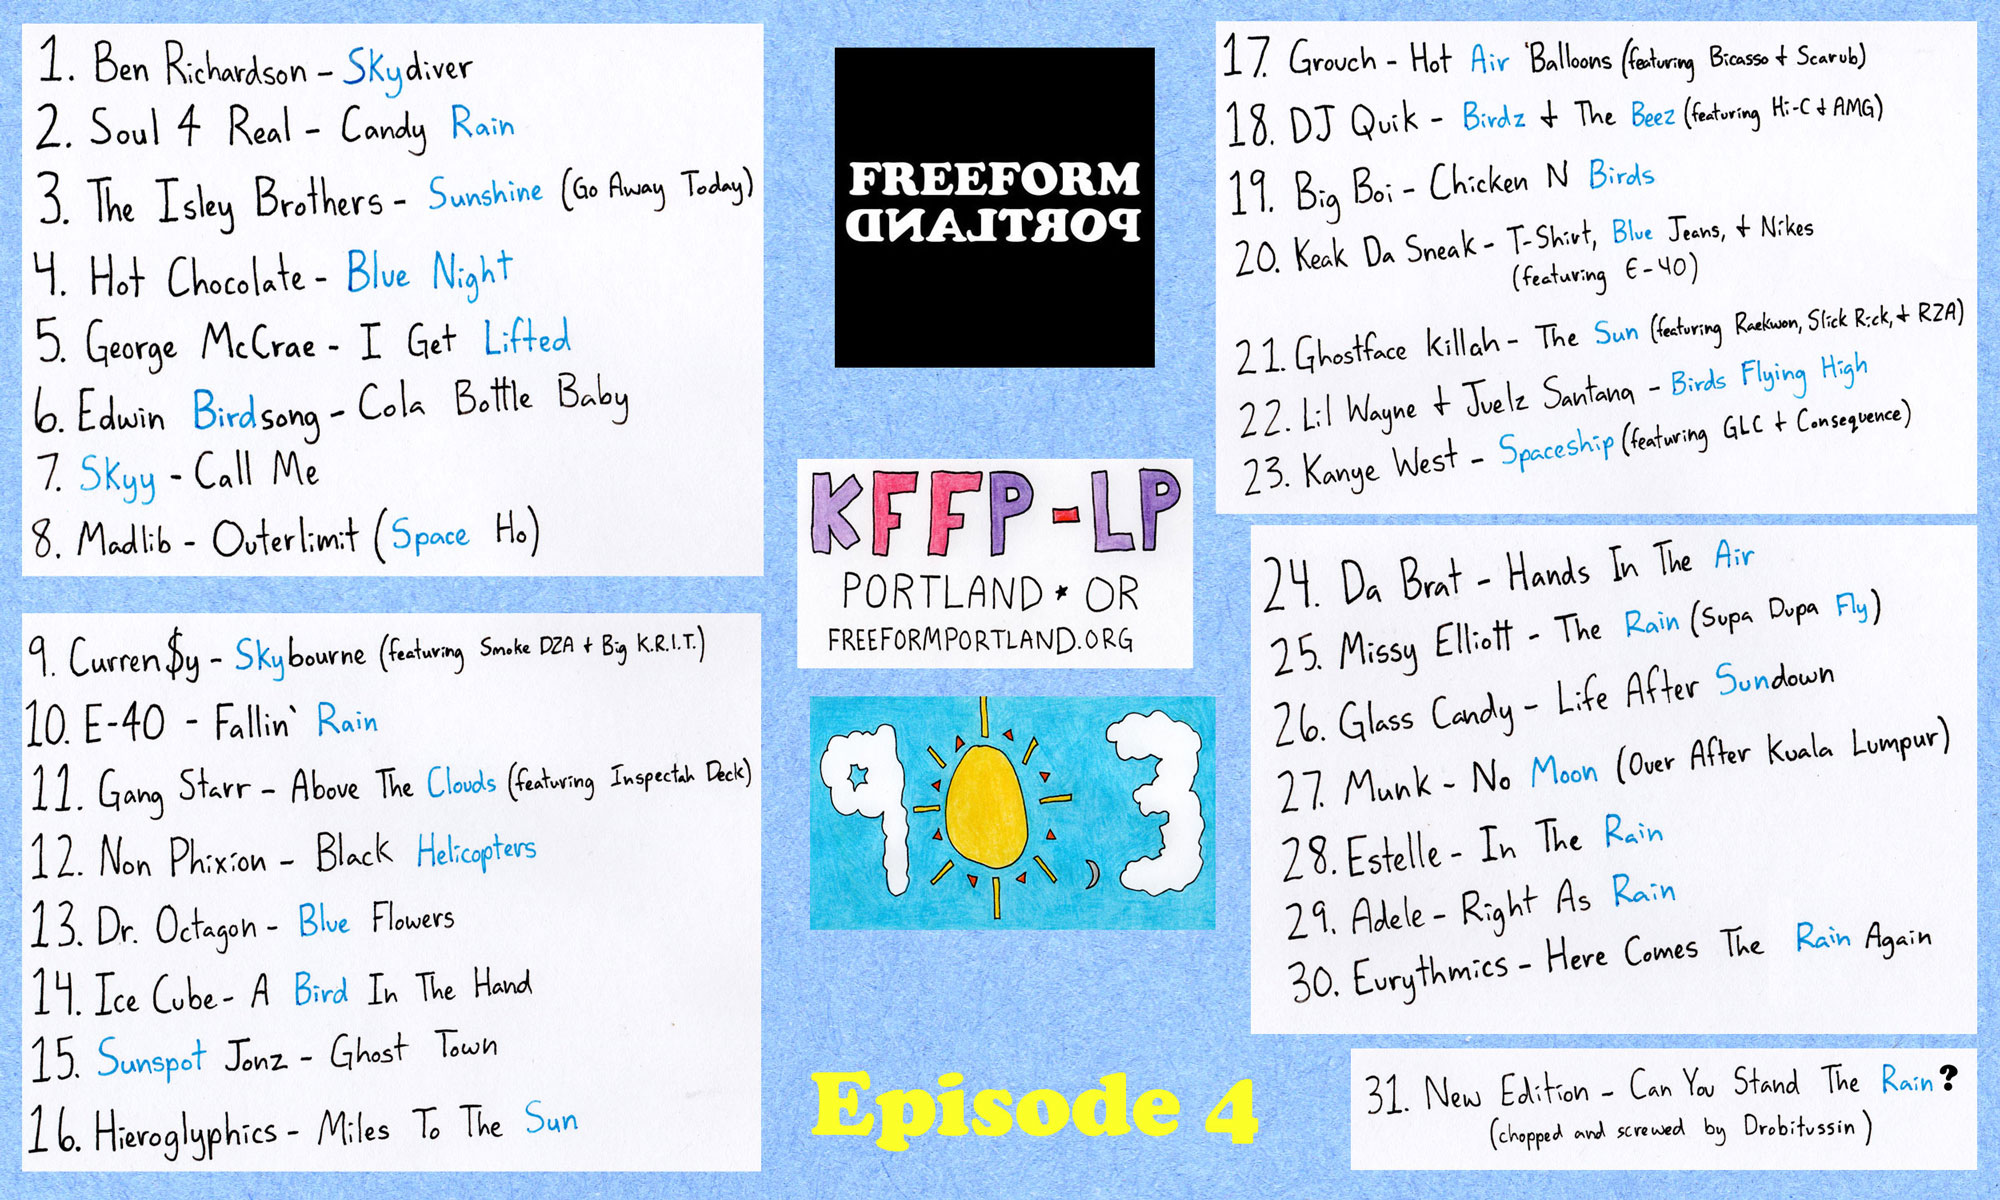 1. Ben Richardson - Skydiver
2. Soul 4 Real - Candy Rain
3. The Isley Brothers - Sunshine (Go Away Today)
4. Hot Chocolate - Blue Night
5. George McCrae - I Get Lifted
6. Edwin Birdsong - Cola Bottle Baby
7. Skyy - Call Me
8. Madlib - Outerlimit (Space Ho)
9. Curren$y - Skybourne (featuring Smoke DZA + Big K.R.I.T.)
10. E-40 - Fallin' Rain
11. Gang Starr - Above The Clouds (featuring Inspectah Deck)
12. Non Phixion - Black Helicopters
13. Dr. Octagon - Blue Flowers
14. Ice Cube - A Bird In The Hand
15. Sunspot Jonz - Ghost Town
16. Hieroglyphics - Miles To The Sun
FREEFORM
PORTLAND
KFFP-LP
PORTLAND * OR
FREEFORMPORTLAND.ORG
90.3
Episode 4
17. Grouch - Hot Air Balloons (featuring Bicasso + Scarub)
18. DJ Quik - Birdz + The Beez (featuring Hi-C + AMG)
19. Big Boi - Chicken N Birds
20. Keak Da Sneak - T-Shirt, Blue Jeans, + Nikes
(featuring E-40)
21. Ghostface Killah - The Sun (featuring Raekwon, Slick Rick, + RZA)
22. Lil Wayne + Juelz Santana - Birds Flying High
23. Kanye West - Spaceship (featuring GLC + Consequence)
24. Da Brat - Hands In The Air
25. Missy Elliott - The Rain (Supa Dupa Fly)
26. Glass Candy - Life After Sundown
27. Munk - No Moon (Over After Kuala Lumpur)
28. Estelle - In The Rain
29. Adele - Right As Rain
30. Eurythmics - Here Comes The Rain Again
31. New Edition - Can You Stand The Rain?
(chopped and screwed by Drobitussin)